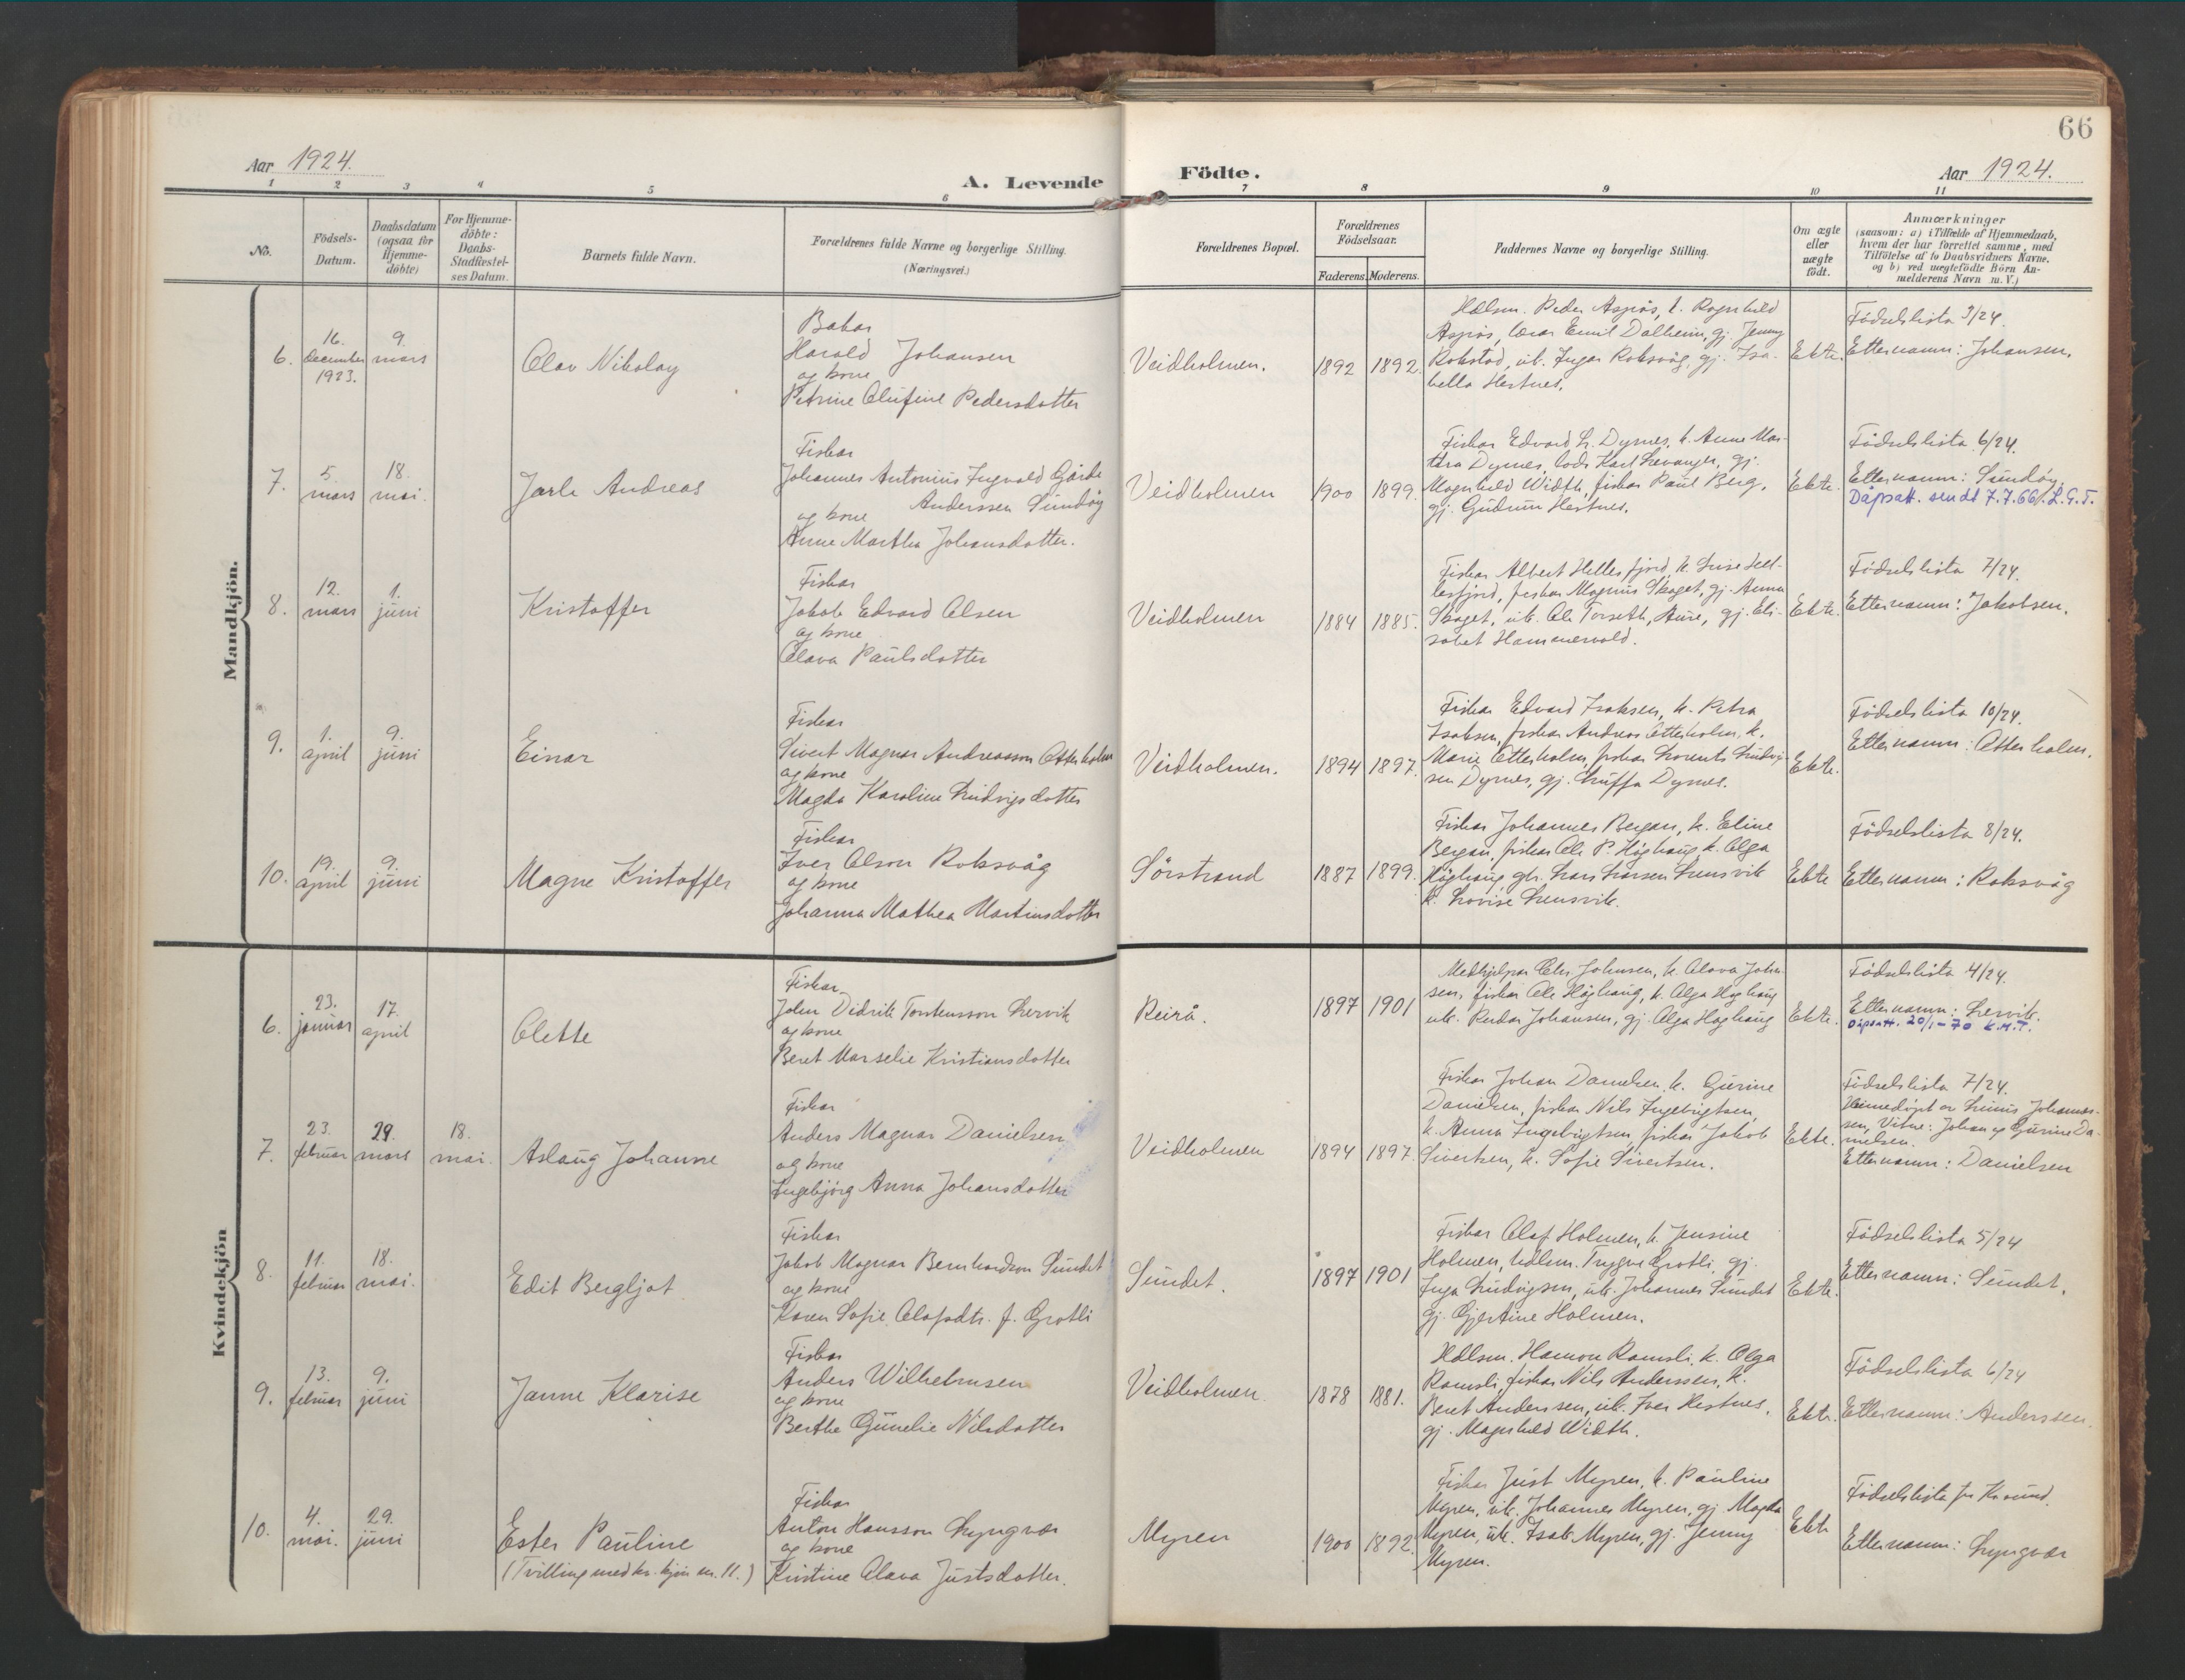 66
Aar 1924.
A. Levende
Födte.
Aar 1924.
1 2 3 4 5 6 7 8 9 10 11
No.
Födsels-
Datum.
Daabsdatum
(ogsaa for
Hjemme-
döbte)
For Hjemme-
döbte:
Daabs-
Stadfæstel-
ses Datum.
Barnets fulde Navn.
Forældrenes fulde Navne og borgerlige Stilling.
(Næringsvei.)
Forældrenes Bopæl.
Forældrenes
Födselsaar.
Faderens. Moderens.
Faddernes Navne og borgerlige Stilling.
Om ægte
eller
uægte
födt.
Anmærkninger
(saasom: a) i Tilfælde af Hjemmedaab,
hvem der har forrettet samme, med
Tilföielse af to Daabsvidners Navne.
og b) ved uægtefödte Börn An-
melderens Navn m. V.)
Mandkjön.
6.
16.
December
1923.
9.
mars
Olav Nikolay
Bakar
Harald Johansen
og kone
Petrine Olufine Pedersdotter
Veidholmen.
1892
1892.
Hdlsm. Peder Aspøs, k. Ragnhild
Aspøs, lærar Emil Dalheim, gj. Jenny
Rokstad, uk. Ingar Roksvåg, gj. Isa-
bella Hestnes.
Ekte.
Födselslista 3/24.
Etternamn: Johansen.
7.
5.
mars
18.
mai.
Jarle Andreas
Fiskar
Johannes Antonius Ingvald Gjørde
Anderssen Sundøy
og kone
Anne Martha Johansdotter.
Veidholmen
1900
1899.
Fiskar Edvard L. Dyrnes, k. Anne Mar-
tha Dyrnes, lods Karl Levanger, gj.
Magnhild Width, fiskar Paul Berg,
gj. Gudrun Hestnes.
Ekte.
Födselslista 6/24.
Etternamn: Sundøy.
Dåpsatt. sendt 7.7.66. L.G.T.
8.
12.
mars
1.
juni
Kristoffer
Fiskar
Jakob Edvard Olsen
og kone
Olava Paulsdotter
Veidholmen
1884
1885.
Fiskar Albert Hellesfjord, k. Luise Hel-
lesfjord, fiskar Magnus Skaget, gj. Anna
Skaget, uk. Ole Torseth, Aure, gj. Eli-
sabet Hammervold.
Ekte.
Födselslista 7/24.
Etternamn: Jakobsen.
9.
1.
april
9.
juni
Einar
Fiskar
Sivert Magnar Andreasson Otterholm
og kone
Magda Karoline Ludvigsdotter
Veidholmen.
1894
1897.
Fiskar Edvard Isaksen, k. Petra
Isaksen, fiskar Andreas Otterholm, k.
Marie Otterholm, fiskar Lorents Ludvig-
sen Dyrnes, gj. Luffa Dyrnes.
Ekte.
Födselslista 10/24.
Etternamn: Otterholm.
10.
19.
april
9.
juni
Magne Kristoffer
Fiskar
Iver Olson Roksvåg
og kone
Johanna Mathea Martinsdotter
Sörstrand
1887
1899.
Fiskar Johannes Bergan, k. Eline
Bergan, fiskar Ole P. Höghaug, k. Olga
Höghaug, gbr. Lars Larsen Lensvik
k. Lovise Lensvik.
Ekte
Födselslista 8/24.
Etternamn: Roksvåg
Kvindekjön
6.
23.
januar
17.
april
Olette
Fiskar
John Didrik Torstensson Lervik
og kone
Beret Marselie Kristiansdotter
Reirå.
1897
1901
Medhjelpar Johnsen, k. Olava John-
sen, fiskar Ole Höghaug, k. Olga Höghaug
uk. Peder Johansen, gj. Olga Höghaug
Ekte.
Födselslista 4/24.
Etternamn: Lervik.
Dåpsatt. 20/1-70 K.M.T.
7.
23.
februar
29.
mars
18.
mai.
Aslaug Johanne
Fiskar
Anders Magnar Danielsen
og kone
Ingebjörg Anna Johansdotter
Veidholmen
1894
1897.
Fiskar Johan Danielsen, k. Gurine
Danielsen, fiskar Nils Ingebrigtsen,
k. Anna Ingebrigtsen, fiskar Jakob
Sivertsen, k. Sofie Sivertsen.
Ekte.
Födselslista 7/24.
Heimedöpt av Linus Johannes-
sen, Vitne: Johan og Gurine Da-
nielsen.
Etternamn: Danielsen
8.
11.
februar
18.
mai.
Edit Bergljot
Fiskar
Jakob Magnar Bernhardson Sundet
og kone
Karen Sofie Olafsdtr. f. Grotli
Sundet.
1897
1901
Fiskar Olaf Holmen, k. Jensine
Holmen, hdlsm. Trygve Grotli, gj.
Inga Ludvigsen, uk. Johannes Sundet
gj. Gjertine Holmen.
Ekte.
Födselslista 5/24
Etternamn: Sundet.
9.
13.
februar
9.
juni
Janne Klarise
Fiskar
Anders Wilhelmsen
og kone
Berthe Gunelie Nilsdotter
Veidholmen.
1878
1881.
Hdlsm. Hamon Ramsli, k. Olga
Ramsli, fiskar Nils Anderssen, k.
Beret Anderssen, uk. Ivar Hestnes,
gj. Magnhild Width.
Ekte.
Födselslista 6/24
Etternamn: Anderssen.
10.
4.
mai.
29.
juni
Ester Pauline
(Tvilling med kv. kjön nr. 11.)
Fiskar
Anton Hansson Lyngvær
og kone
Kristine Olava Justsdotter.
Myren
1900
1892.
Fiskar Just Myren, k. Pauline
Myren, uk. Johannes Myren, gj. Magda
Myren, uk. Isak Myren, gj. Jenny
Myren.
Ekte
Födselslista fr. Krsund.
Etternamn: Lyngvær